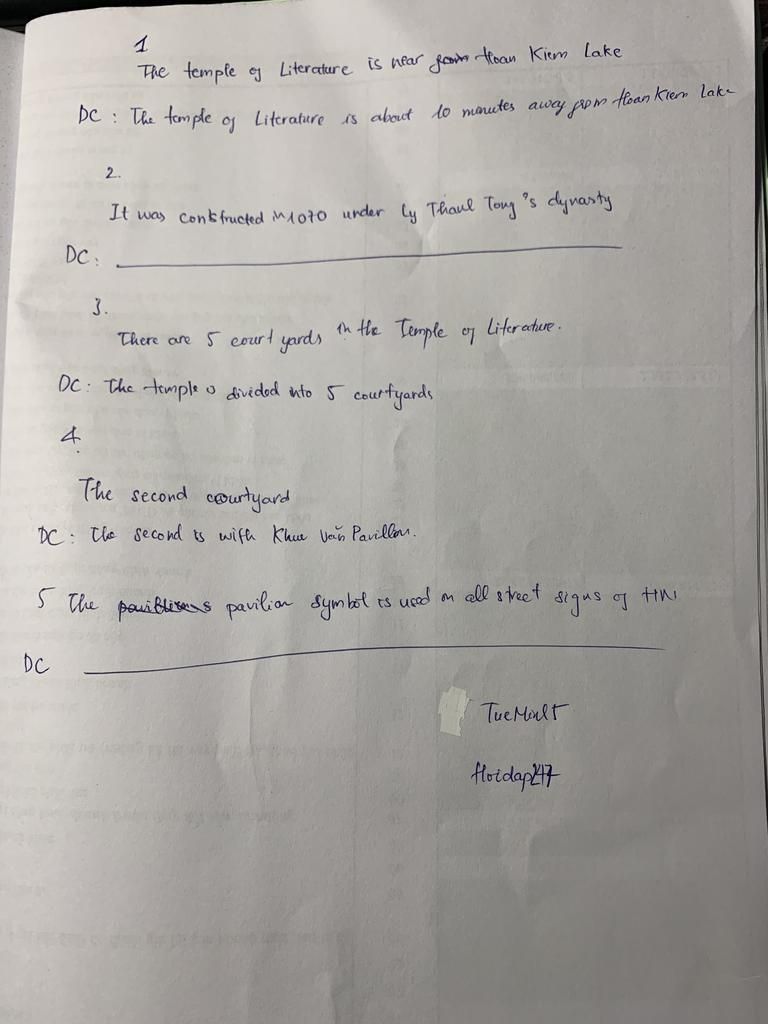 1
The temple of Literature is near from Hoan Kiem Lake
DC : The temple of Literature is about 10 minutes away from Hoan Kiem Lake
2.
It was constructed in 1070 under Ly Thanh Tong's dynasty
DC :
3.
There are 5 court yards in the Temple of Literature.
DC : The temple is divided into 5 courtyards
4.
The second courtyard
DC : The second is with Khue Văn Pavillon.
5 The pavilion symbol is used on all street signs of HN
DC
TueMinh5
Hoidap247